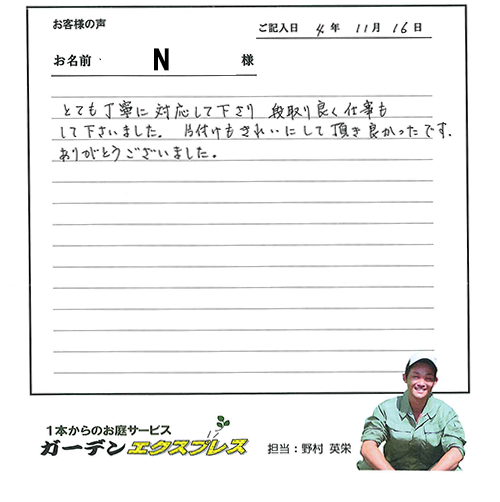 お客様の声
ご記入日 4年 11月 16日
お名前 N 様
とても丁寧に対応して下さり 段取り良く仕事も
して下さいました。 片付けもきれいにして頂き良かったです.
ありがとうございました。
1本からのお庭サービス
ガーデンエクスプレス
担当：野村 英栄